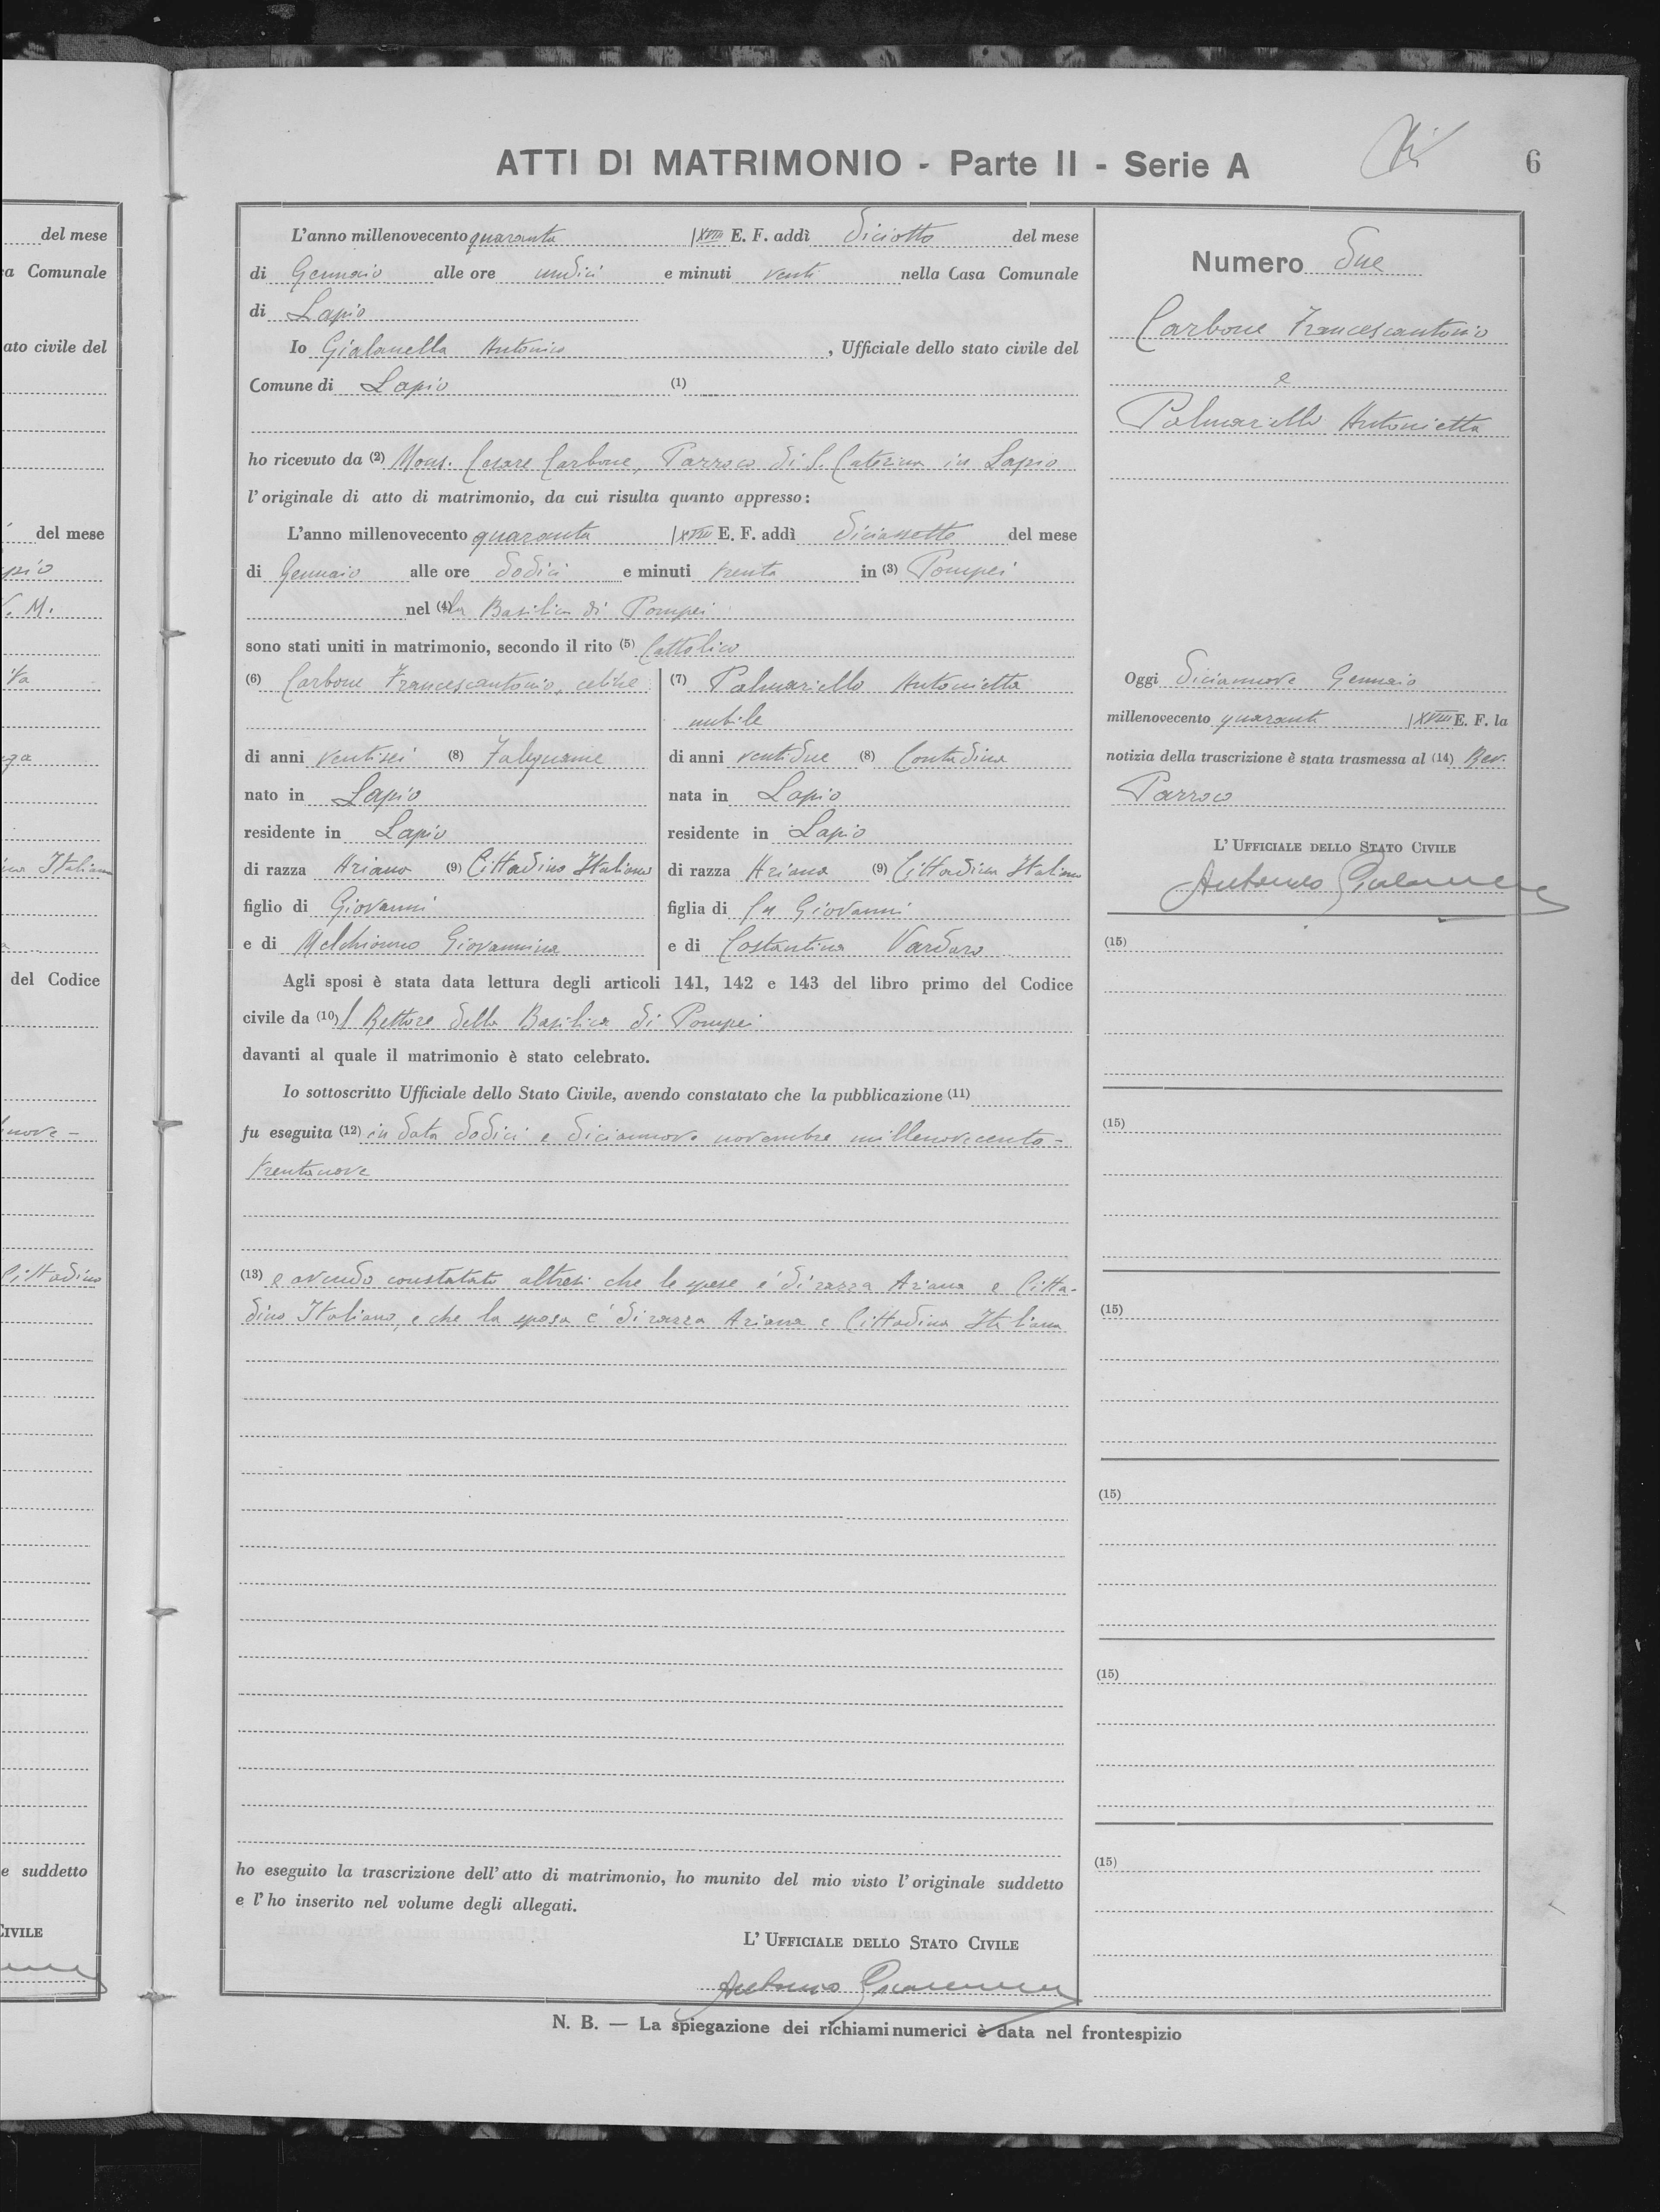 del mese
a Comunale
ato civile del
del mese
pio
V. M.
ta
ga
ino Italiano
del Codice
nove -
Cittadino
e suddetto
CIVILE
ATTI DI MATRIMONIO - Parte II - Serie A
6
L'anno millenovecento quaranta XVIII E. F. addì diciotto del mese
di Gennaio alle ore undici e minuti venti nella Casa Comunale
di Lapio
Io Gialanella Antonio, Ufficiale dello stato civile del
Comune di Lapio (1)
ho ricevuto da (2) Mons. Cesare Carbone, Parroco di S. Caterina in Lapio
l'originale di atto di matrimonio, da cui risulta quanto appresso:
L'anno millenovecento quaranta XVIII E. F. addì diciassette del mese
di Gennaio alle ore dodici e minuti trenta in (3) Pompei
nel (4) la Basilica di Pompei
sono stati uniti in matrimonio, secondo il rito (5) Cattolico
(6) Carbone Francescantonio, celibe
di anni ventisei (8) Falegname
nato in Lapio
residente in Lapio
di razza Ariano (9) Cittadino Italiano
figlio di Giovanni
e di Melchionno Giovannina
(7) Palmariello Antonietta
nubile
di anni ventidue (8) Contadina
nata in Lapio
residente in Lapio
di razza Ariana (9) Cittadina Italiana
figlia di fu Giovanni
e di Costantina Vardaro
Agli sposi è stata data lettura degli articoli 141, 142 e 143 del libro primo del Codice
civile da (10) l Rettore della Basilica di Pompei
davanti al quale il matrimonio è stato celebrato.
Io sottoscritto Ufficiale dello Stato Civile, avendo constatato che la pubblicazione (11)
fu eseguita (12) in data dodici e diciannove novembre millenovecento-
trentanove
(13) e avendo constatato altresì che lo spose e' di razza Ariana e Citta-
dino Italiano, e che la sposa e' di razza Ariana e Cittadina Italiana
ho eseguito la trascrizione dell'atto di matrimonio, ho munito del mio visto l'originale suddetto
e l'ho inserito nel volume degli allegati.
L'UFFICIALE DELLO STATO CIVILE
Antonio Gialanella
Numero due
Carbone Francescantonio
e
Palmariello Antonietta
Oggi diciannove Gennaio
millenovecento quaranta XVIII E. F. la
notizia della trascrizione è stata trasmessa al (14) Rev.
Parroco
L'UFFICIALE DELLO STATO CIVILE
Antonio Gialanella
(15)
(15)
(15)
(15)
(15)
(15)
N. B. — La spiegazione dei richiami numerici è data nel frontespizio